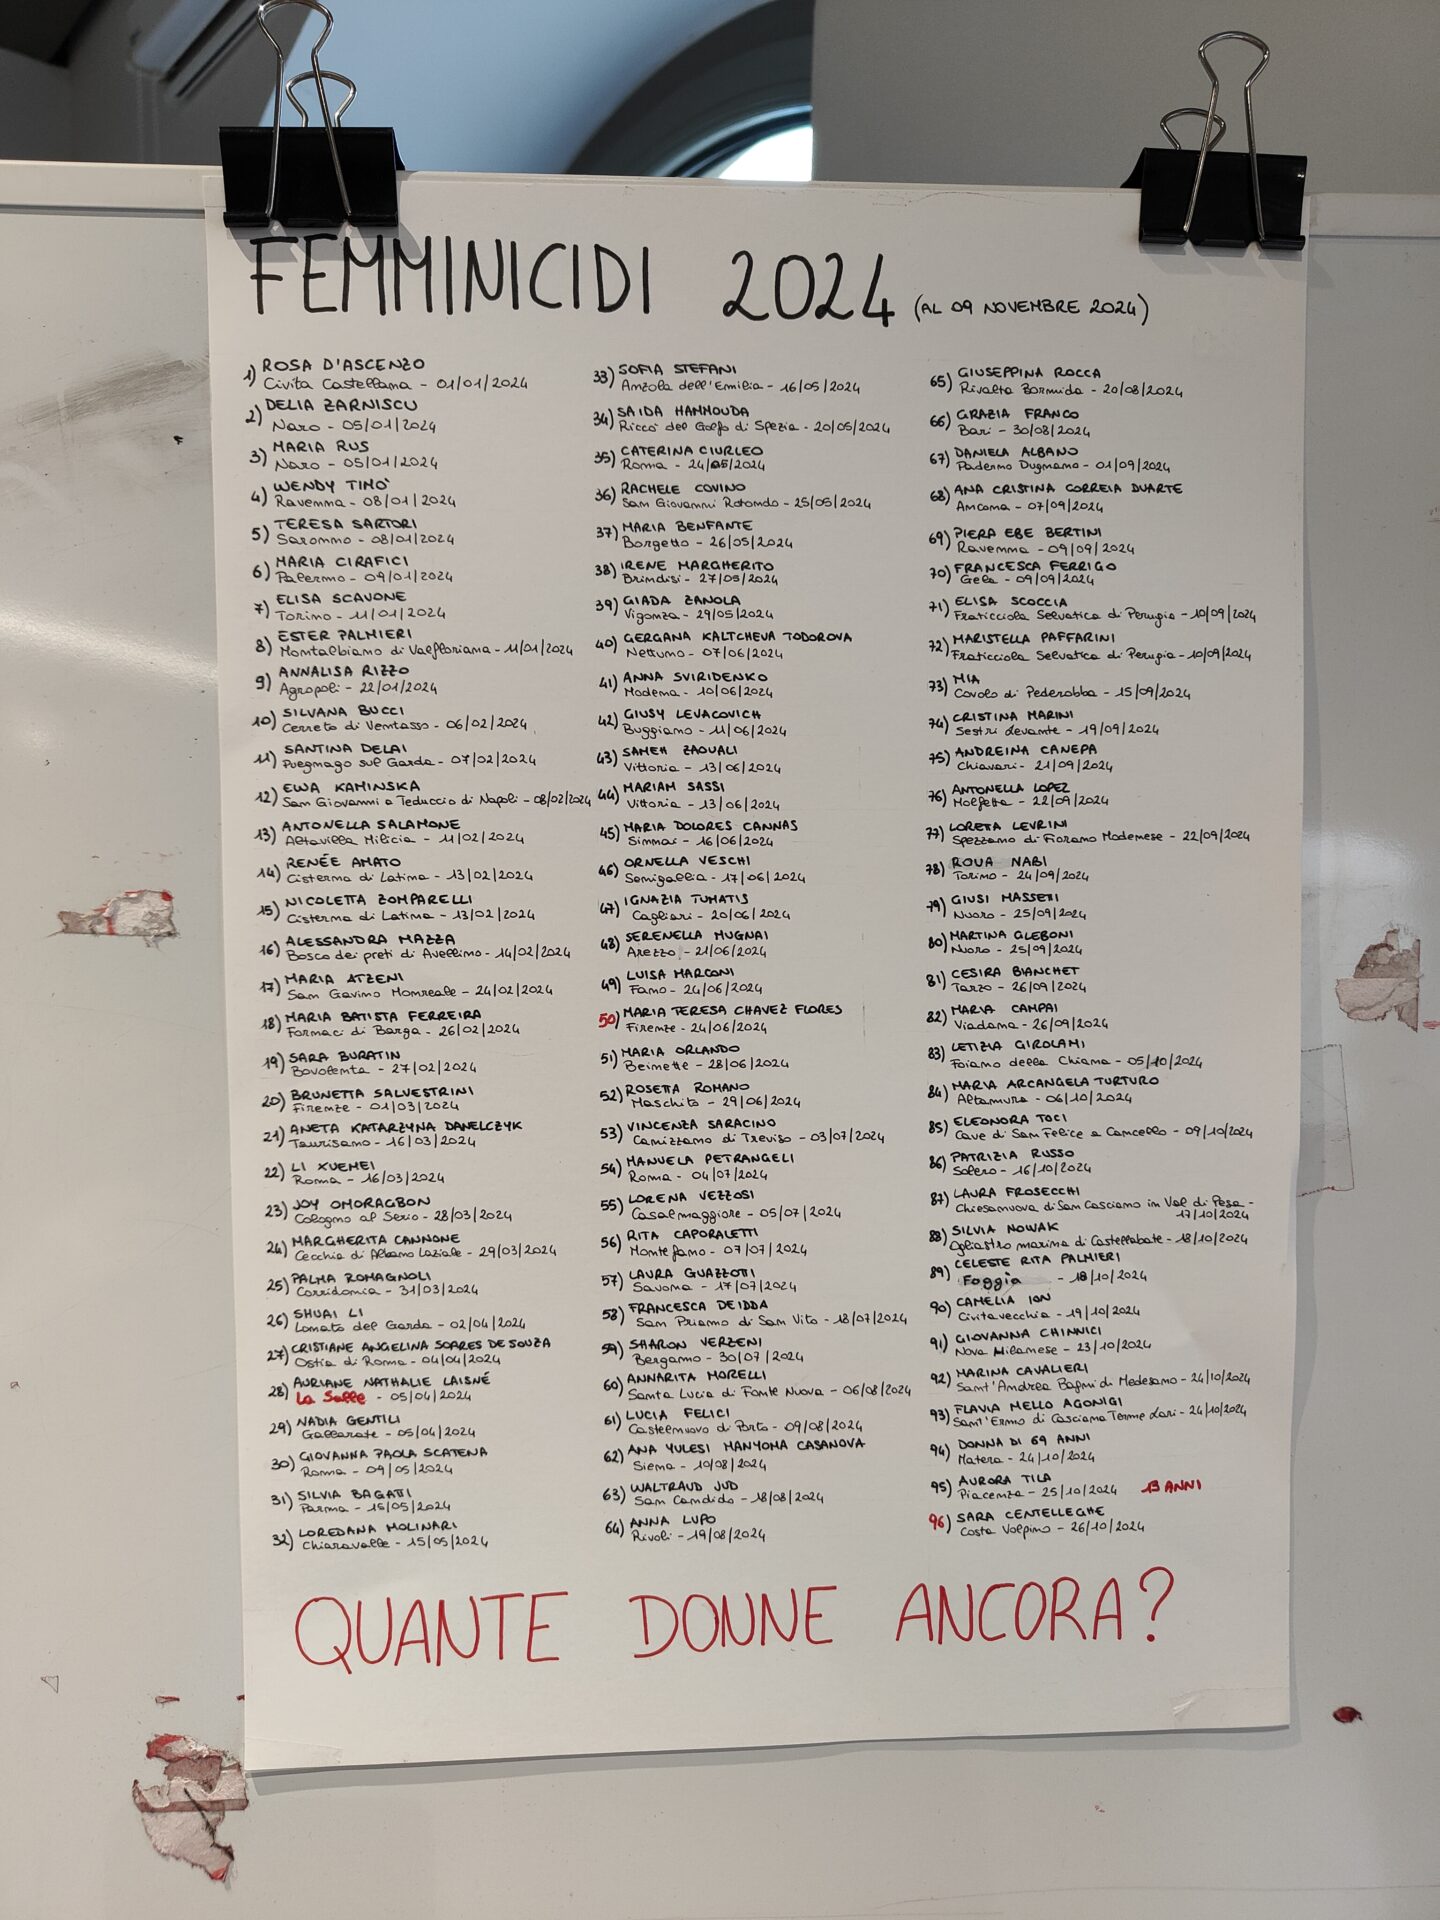 FEMMINICIDI 2024 (AL 09 NOVEMBRE 2024)
1) ROSA D'ASCENZO
Civita Castellana - 01/01/2024
2) DELIA ZARNISCU
Naro - 05/01/2024
3) MARIA RUS
Naro - 05/01/2024
4) WENDY TINO'
Ravenna - 08/01/2024
5) TERESA SARTORI
Saronno - 08/01/2024
6) MARIA CIRAFICI
Palermo - 09/01/2024
7) ELISA SCAVONE
Torino - 11/01/2024
8) ESTER PALMIERI
Montalbiano di Valfloriana - 11/01/2024
9) ANNALISA RIZZO
Agropoli - 22/01/2024
10) SILVANA BUCCI
Cerreto di Ventasso - 06/02/2024
11) SANTINA DELAI
Puegnago sul Garda - 07/02/2024
12) EWA KAMINSKA
San Giovanni a Teduccio di Napoli - 08/02/2024
13) ANTONELLA SALAMONE
Altavilla Milicia - 11/02/2024
14) RENÉE AMATO
Cisterna di Latina - 13/02/2024
15) NICOLETTA ZOMPARELLI
Cisterna di Latina - 13/02/2024
16) ALESSANDRA MAZZA
Bosco dei preti di Avellino - 14/02/2024
17) MARIA ATZENI
San Gavino Monreale - 24/02/2024
18) MARIA BATISTA FERREIRA
Fornaci di Barga - 26/02/2024
19) SARA BURATIN
Bovolenta - 27/02/2024
20) BRUNETTA SALVESTRINI
Firenze - 01/03/2024
21) ANETA KATARZYNA DANELCZYK
Taurisano - 16/03/2024
22) LI XUEMEI
Roma - 16/03/2024
23) JOY OMORAGBON
Cologno al Serio - 28/03/2024
24) MARGHERITA CANNONE
Cecchia di Albano Laziale - 29/03/2024
25) PALMA ROMAGNOLI
Corridonia - 31/03/2024
26) SHUAI LI
Lonato del Garda - 02/04/2024
27) CRISTIANE ANGELINA SOARES DE SOUZA
Ostia di Roma - 04/04/2024
28) AURIANE NATHALIE LAISNÉ
La Salle - 05/04/2024
29) NADIA GENTILI
Gallarate - 05/04/2024
30) GIOVANNA PAOLA SCATENA
Roma - 09/05/2024
31) SILVIA BAGATTI
Parma - 15/05/2024
32) LOREDANA MOLINARI
Chiaravalle - 15/05/2024
33) SOFIA STEFANI
Anzola dell'Emilia - 16/05/2024
34) SAIDA HAMMOUDA
Riccò del Golfo di Spezia - 20/05/2024
35) CATERINA CIURLEO
Roma - 24/05/2024
36) RACHELE COVINO
San Giovanni Rotondo - 25/05/2024
37) MARIA BENFANTE
Borgetto - 26/05/2024
38) IRENE MARGHERITO
Brindisi - 27/05/2024
39) GIADA ZANOLA
Vigonza - 29/05/2024
40) GERGANA KALTCHEVA TODOROVA
Nettuno - 07/06/2024
41) ANNA SVIRIDENKO
Modena - 10/06/2024
42) GIUSY LEVACOVICH
Buggiano - 11/06/2024
43) SAMEH ZAOUALI
Vittoria - 13/06/2024
44) MARIAM SASSI
Vittoria - 13/06/2024
45) MARIA DOLORES CANNAS
Sinnai - 16/06/2024
46) ORNELLA VESCHI
Senigallia - 17/06/2024
47) IGNAZIA TUMATIS
Cagliari - 20/06/2024
48) SERENELLA MUGNAI
Arezzo - 21/06/2024
49) LUISA MARCONI
Fano - 24/06/2024
50) MARIA TERESA CHAVEZ FLORES
Firenze - 24/06/2024
51) MARIA ORLANDO
Beinette - 28/06/2024
52) ROSETTA ROMANO
Maschito - 29/06/2024
53) VINCENZA SARACINO
Canizzano di Treviso - 03/07/2024
54) MANUELA PETRANGELI
Roma - 04/07/2024
55) LORENA VEZZOSI
Casalmaggiore - 05/07/2024
56) RITA CAPORALETTI
Montefano - 07/07/2024
57) LAURA GUAZZOTTI
Savona - 17/07/2024
58) FRANCESCA DEIDDA
San Priamo di San Vito - 18/07/2024
59) SHARON VERZENI
Bergamo - 30/07/2024
60) ANNARITA MORELLI
Santa Lucia di Fonte Nuova - 06/08/2024
61) LUCIA FELICI
Castelnuovo di Porto - 09/08/2024
62) ANA YULESI MANYOMA CASANOVA
Siena - 10/08/2024
63) WALTRAUD JUD
San Candido - 18/08/2024
64) ANNA LUPO
Rivoli - 19/08/2024
65) GIUSEPPINA ROCCA
Rivalta Bormida - 20/08/2024
66) GRAZIA FRANCO
Bari - 30/08/2024
67) DANIELA ALBANO
Paderno Dugnano - 01/09/2024
68) ANA CRISTINA CORREIA DUARTE
Ancona - 07/09/2024
69) PIERA EBE BERTINI
Ravenna - 09/09/2024
70) FRANCESCA FERRIGO
Gela - 09/09/2024
71) ELISA SCOCCIA
Fratticciola Selvatica di Perugia - 10/09/2024
72) MARISTELLA PAFFARINI
Fratticciola Selvatica di Perugia - 10/09/2024
73) MIA
Covolo di Pederobba - 15/09/2024
74) CRISTINA MARINI
Sestri Levante - 19/09/2024
75) ANDREINA CANEPA
Chiavari - 21/09/2024
76) ANTONELLA LOPEZ
Molfetta - 22/09/2024
77) LORETA LEVRINI
Spezzano di Fiorano Modenese - 22/09/2024
78) ROUA NABI
Torino - 24/09/2024
79) GIUSI MASSETTI
Nuoro - 25/09/2024
80) MARTINA GLEBONI
Nuoro - 25/09/2024
81) CESIRA BIANCHET
Tarzo - 26/09/2024
82) MARIA CAMPAI
Viadana - 26/09/2024
83) LETIZIA GIROLAMI
Foiano della Chiana - 05/10/2024
84) MARIA ARCANGELA TURTURO
Altamura - 06/10/2024
85) ELEONORA TOCI
Cave di San Felice a Cancello - 09/10/2024
86) PATRIZIA RUSSO
Solero - 16/10/2024
87) LAURA FROSECCHI
Chiesanuova di San Casciano in Val di Pesa -
17/10/2024
88) SILVIA NOWAK
Ogliastro marina di Castellabate - 18/10/2024
89) CELESTE RITA PALMIERI
Foggia - 18/10/2024
90) CAMELIA ION
Civitavecchia - 19/10/2024
91) GIOVANNA CHINNICI
Nova Milanese - 23/10/2024
92) MARINA CAVALIERI
Sant'Andrea Bagni di Medesano - 24/10/2024
93) FLAVIA MELLO AGONIGI
Sant'Ermo di Casciana Terme Lari - 24/10/2024
94) DONNA DI 69 ANNI
Matera - 24/10/2024
95) AURORA TILA
Piacenza - 25/10/2024 13 ANNI
96) SARA CENTELLEGHE
Costa Volpino - 26/10/2024
QUANTE DONNE ANCORA?